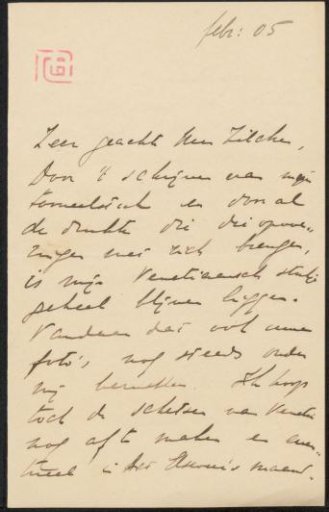 febr: 05
Zeer geachte Heer Zilcken,
Door 't schrijven van mijn
tooneelstuk en door al
de drukte die die opvoe-
ringen met zich brengen,
is mijn Venetiaansch stuk
geheel blijven liggen.
Vandaar dat ook uwe
foto's, nog steeds onder
mij berusten. Ik hoop
toch de schetsen van Venetië
nog af te maken en even-
tueel in